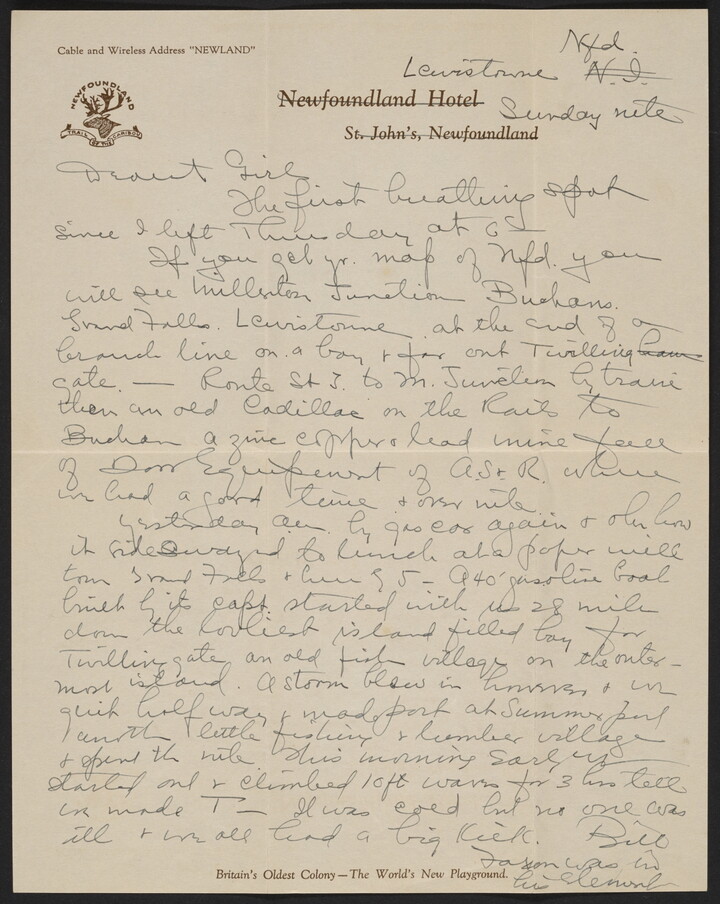 Cable and Wireless Address "NEWLAND"
Nfd.
Lewistowne N.J.
NEWFOUNDLAND
TRAIL OF THE CARIBOU
Newfoundland Hotel
Sunday nite
St. John's, Newfoundland
Dearest Girl
The first breathing spot
since I left Thursday at 6
If you get yr. map of Nfd. you
will see Millerton Junction Buchans.
Grand Falls. Lewistowne at the end of a
branch line on a bay & far out Twillingham
gate. — Route St J. to M. Junction by train
then an old Cadillac on the Rails to
Buchan a zinc copper & lead mine full
of Dorr Equipment of A.S. & R. where
we had a good time & over nite.
Yesterday am. by gas car again & oh how
it side swayed to lunch at a paper mill
town Grand Falls & here by 5 – A 40' gasoline boat
built by its capt. started with us 28 mile
down the lovliest island filled bay for
Twillingate an old fish village on the outer-
most island. A storm blew in however & we
quit half way & made port at Summer ford
another little fishing & lumber village
& spent the nite. This morning early
started out & climbed 10 ft waves for 3 hrs till
we made T— It was cold but no one was
ill & we all had a big kick. Bill
was in
his element
Britain's Oldest Colony—The World's New Playground.